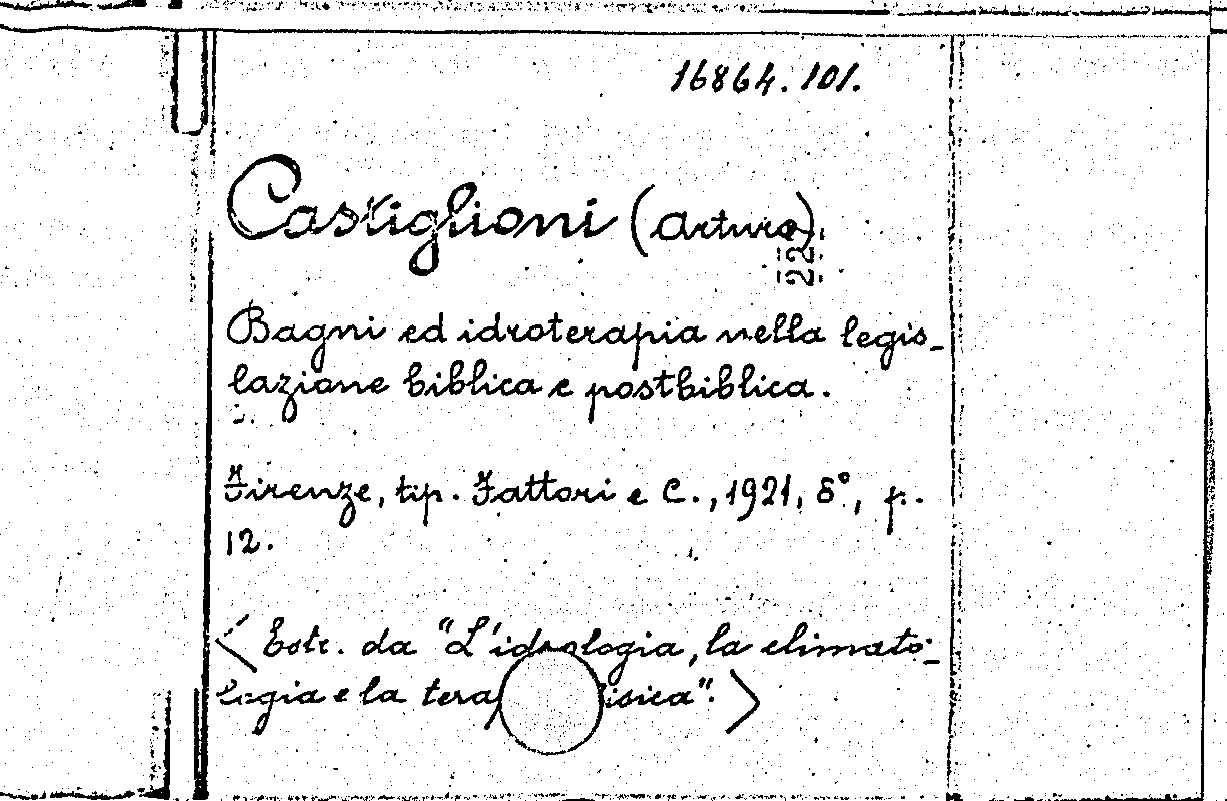 16864.101.
Castiglioni (Arturo)
22
Bagni ed idroterapia nella legis-
lazione biblica e postbiblica.
Firenze, tip. Fattori e C., 1921, 8°, p.
12.
< Estr. da "L'idrologia, la climato-
logia e la tera isica". >